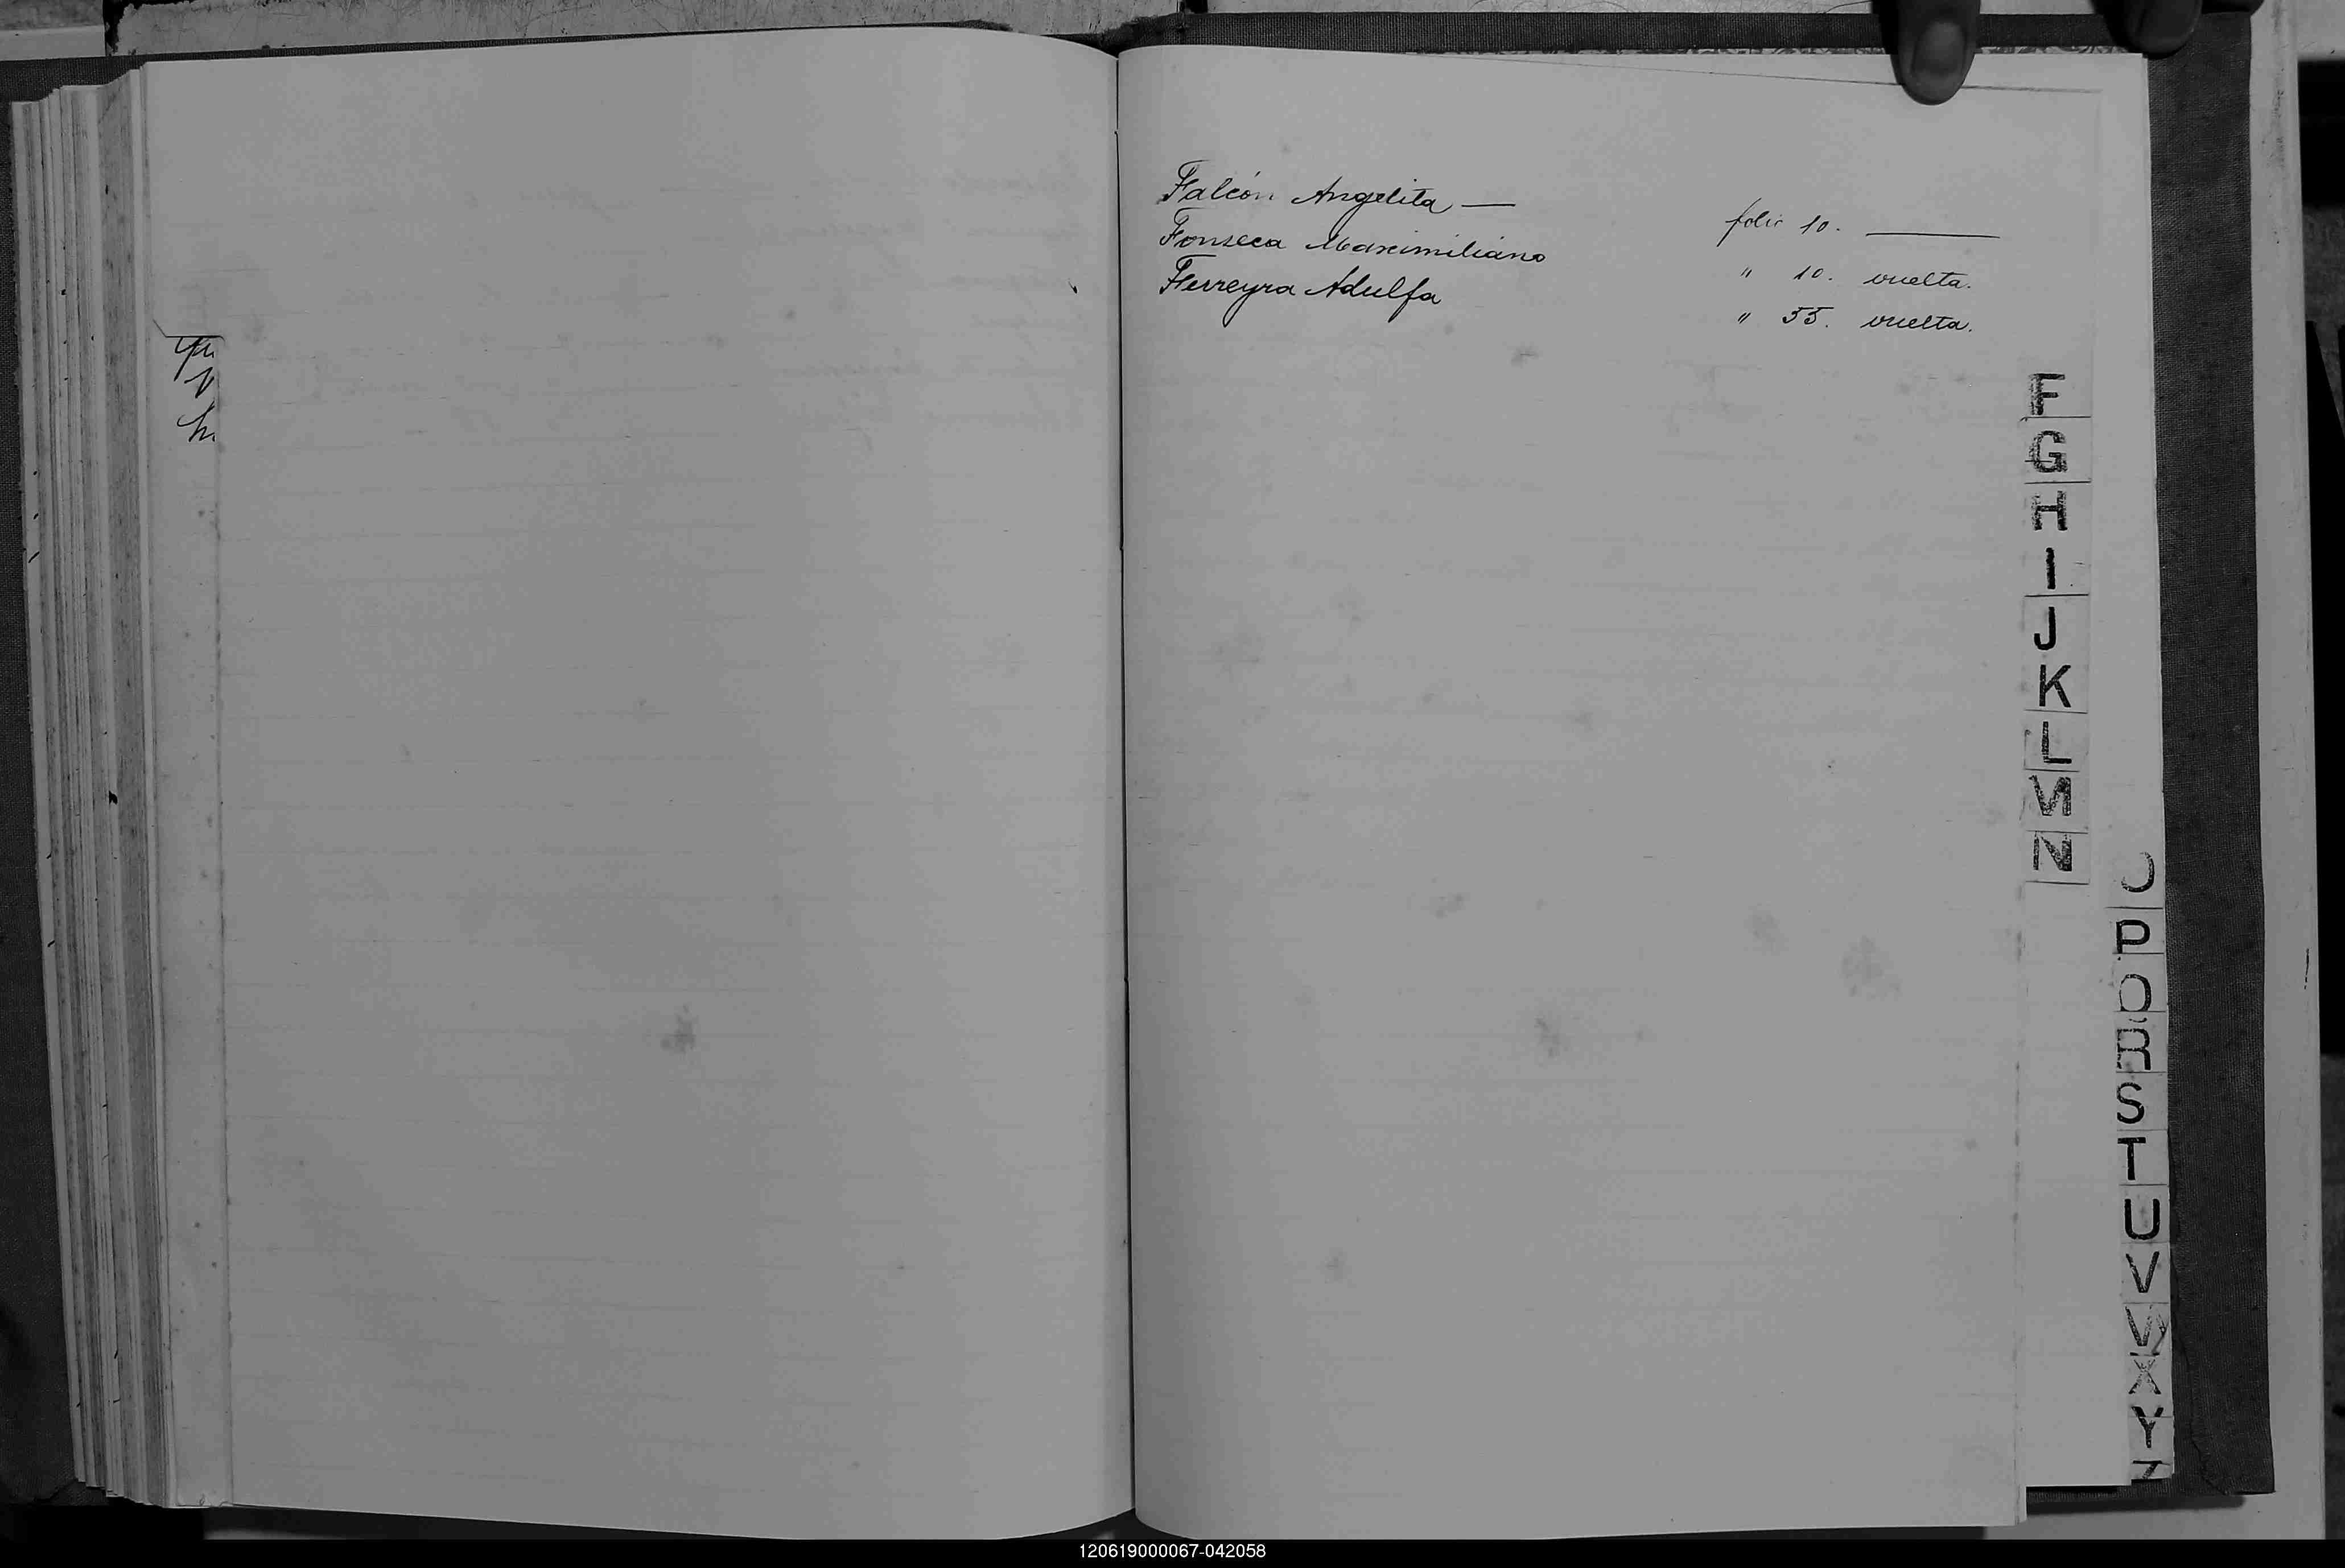 Falcón Angelita — folio 10. —
Fonseca Maximiliano " 10. vuelta.
Ferreyra Adulfa " 55. vuelta.
F
G
H
I
J
K
L
M
N
O
P
Q
R
S
T
U
V
W
X
Y
Z
120619000067-042058